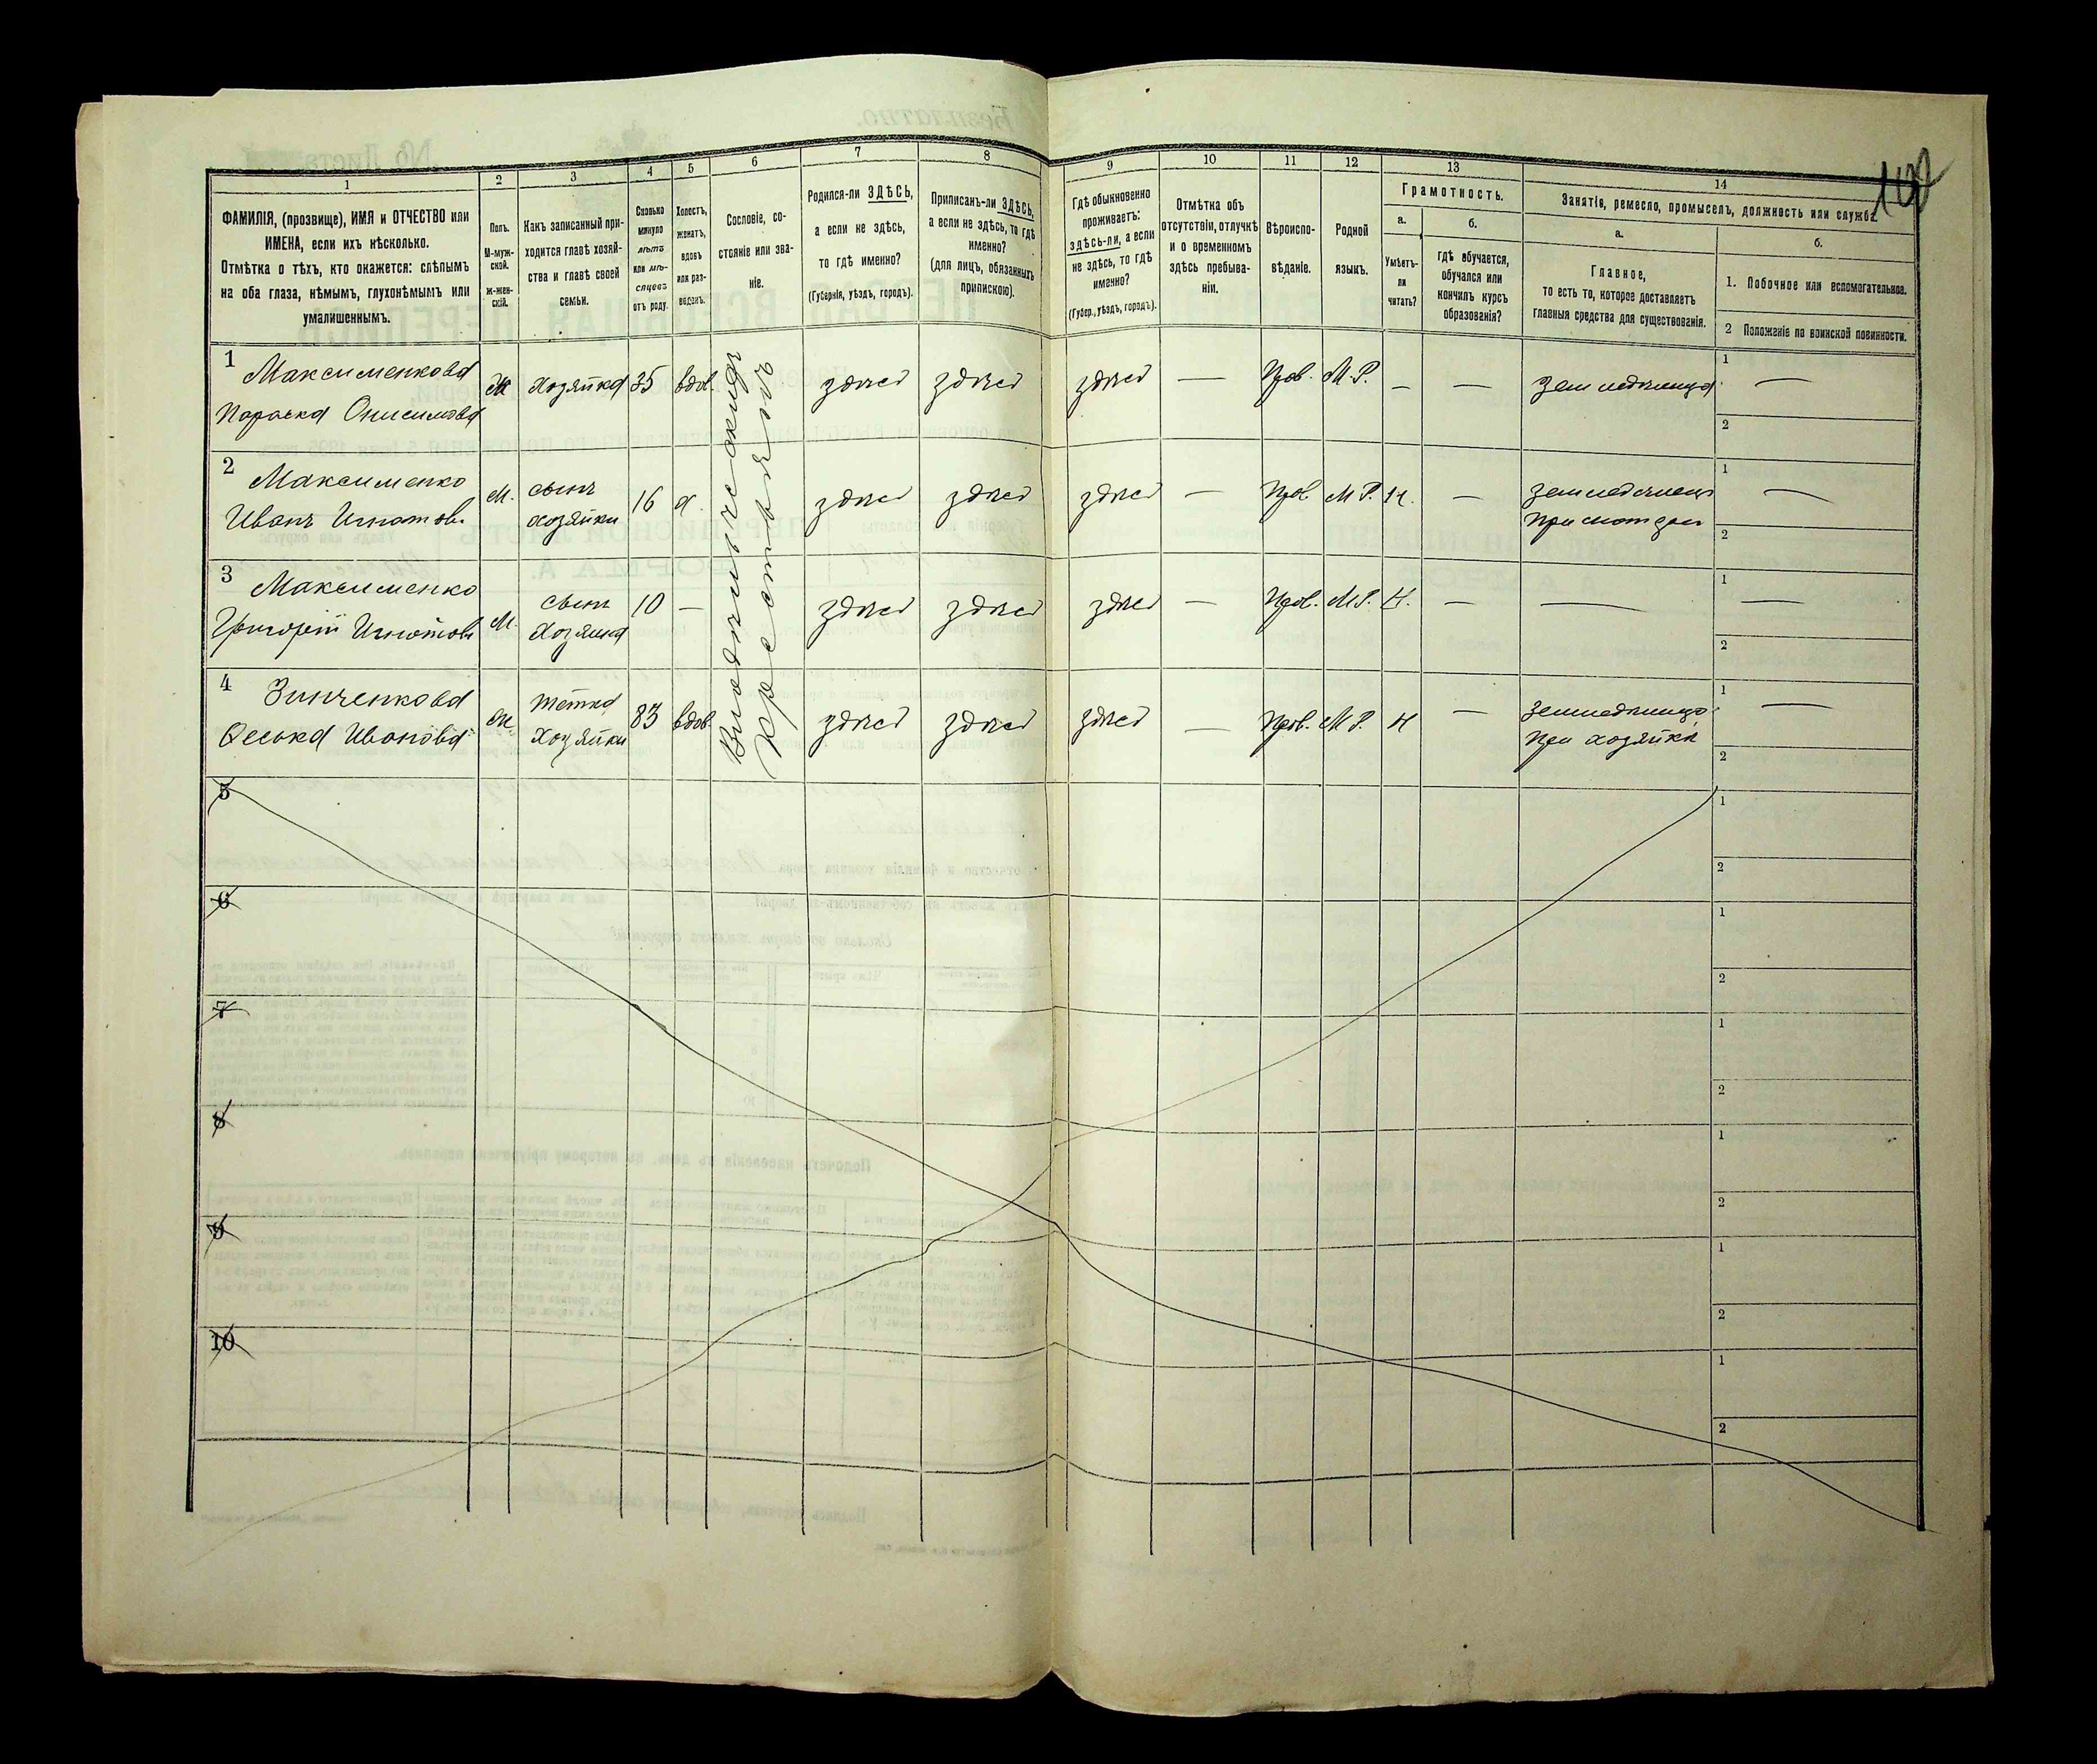 1 2 3 4 5 6 7 8 9 10 11 12 13 14
ФАМИЛІЯ, (прозвище), ИМЯ и ОТЧЕСТВО или
ИМЕНА, если ихъ нѣсколько.
Отмѣтка о тѣхъ, кто окажется: слѣпымъ
на оба глаза, нѣмымъ, глухонѣмымъ или
умалишеннымъ.
Полъ.
М-муж-
ской.
Ж-жен-
скій.
Какъ записанный при-
ходится главѣ хозяй-
ства и главѣ своей
семьи.
Сколько
минуло
лѣтъ
или мѣ-
сяцевъ
отъ роду.
Холостъ,
женатъ,
вдовъ
или раз-
веденъ.
Сословіе, со-
стояніе или зва-
ніе.
Родился-ли ЗДѢСЬ,
а если не здѣсь,
то гдѣ именно?
(Губернія, уѣздъ, городъ).
Приписанъ-ли ЗДѢСЬ,
а если не здѣсь, то гдѣ
именно?
(для лицъ, обязанныхъ
припискою).
Гдѣ обыкновенно
проживаетъ:
здѣсь-ли, а если
не здѣсь, то гдѣ
именно?
(Губер., уѣздъ, городъ).
Отмѣтка объ
отсутствіи, отлучкѣ
и о временномъ
здѣсь пребыва-
ніи.
Вѣроиспо-
вѣданіе.
Родной
языкъ.
Грамотность.
а.
Умѣетъ-
ли
читать?
б.
гдѣ обучается,
обучался или
кончилъ курсъ
образованія?
Занятіе, ремесло, промыселъ, должность или служба.
а.
Главное,
то есть то, которое доставляетъ
главныя средства для существованія.
б.
1. Побочное или вспомогательное.
2 Положеніе по воинской повинности.
1 Максименкова
Параска Онисимова
Ж Хозяйка 35 вдов.
здѣсь здѣсь здѣсь — Прав. М.Р. — —
1 —
2
2 Максименко
Иванъ Игнатовъ
М. сынъ
хозяйки
16 х.
здѣсь здѣсь здѣсь — Прав М Р. Н. —
1 —
2
3 Максименко
Григорій Игнатовъ
М. сынъ
Хозяйки
10 —
здѣсь здѣсь здѣсь — Прав. М Р. Н. — —
1 —
2
4 Зинченкова
Ивановa
Ж. тётка
Хозяйки
83 вдов.
здѣсь здѣсь здѣсь — Прав. М Р. Н —
при хозяйкѣ
1 —
2
крестьянъ
5
1
2
6
1
2
7
1
2
8
1
2
9
1
2
10
1
2